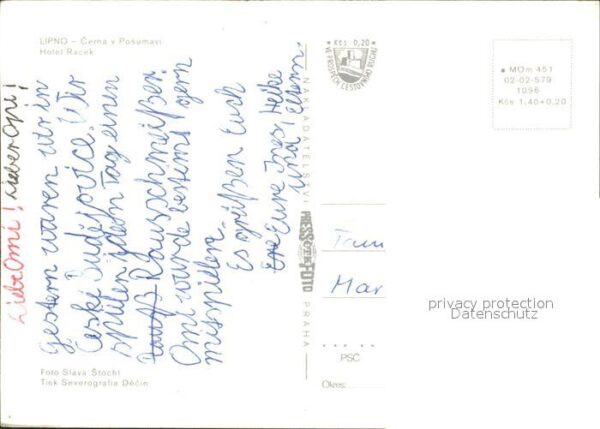 LIPNO – Černá v Pošumaví
Hotel Racek
Liebe Omi! Lieber Opi!
Gestern waren wir in
České Budějovice. Wir
spielen jeden Tag einen
Rausschmeißer.
Omi würde bestimt gern
misspielen.
Es grüßen Euch
Eure Ines, Heike
und Eltern.
Foto Slava Štochl
Tisk Severografia Děčín
* Kčs 0,20 *
VE PROSPĚCH CESTOVNÍHO RUCHU
NAKLADATELSTVÍ
PRESSFOTO
PRAHA
* MOm 451
02-02-579
1096
Kčs 1,40+0,20
Fam
Mar
privacy protection
Datenschutz
PSČ
Okres: